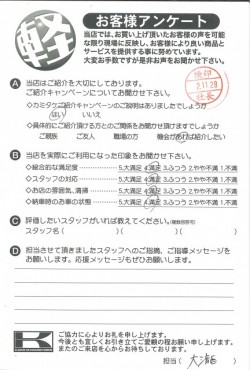 軽
お客様アンケート
当店では、お買い上げ頂いたお客様の声を可能な限り現場に反映し、お客様により良い商品とサービスを提供する事に努めています。
大変お手数ですが是非お声をお聞かせ下さい。
A 当店はご紹介を大切にしております。
ご紹介キャンペーンについてお聞かせ下さい。
社長
・カミタケご紹介キャンペーンのご説明はありましたでしょうか
はい いいえ
◇具体的にご紹介頂ける方とのご関係をお聞かせ頂けますでしょうか
ご親族 ご友人 職場の方 機会があれば紹介したい
B 当店を実際にご利用になった印象をお聞かせ下さい。
◇総合的な満足度 5.大満足 4.満足 3.ふつう 2.やや不満 1.不満
◇スタッフの対応 5.大満足 4.満足 3.ふつう 2.やや不満 1.不満
◇お店の雰囲気、清掃 5.大満足 4.満足 3.ふつう 2.やや不満 1.不満
◇納車時のお車の状態 5.大満足 4.満足 3.ふつう 2.やや不満 1.不満
C 評価したいスタッフがいれば教えてください。(複数回答可)
スタッフ名( )( )( )
D 担当させて頂きましたスタッフへのご指摘、ご指導メッセージをお願いします。応援メッセージもぜひお願いします。
K
ご協力に心よりお礼を申し上げます。
今後とも宜しくお引き立てご愛顧の程お願い申し上げます。
またのご来店を心からお待ちしております。
担当(